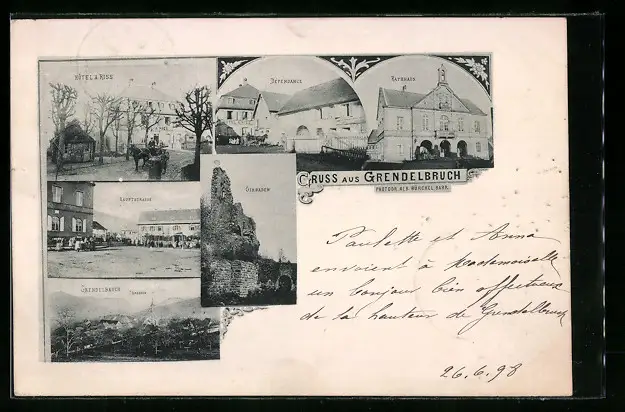 HÔTEL A. RISS
DEPENDANCE
RATHHAUS
GRUSS AUS GRENDELBRUCH
HAUPTSTRASSE
GRENDELBRUCH
Paulette et Anna
envoient à Mademoiselle
un bonjour bien affectueux
de la hauteur de Grendelbruch
26.6.98